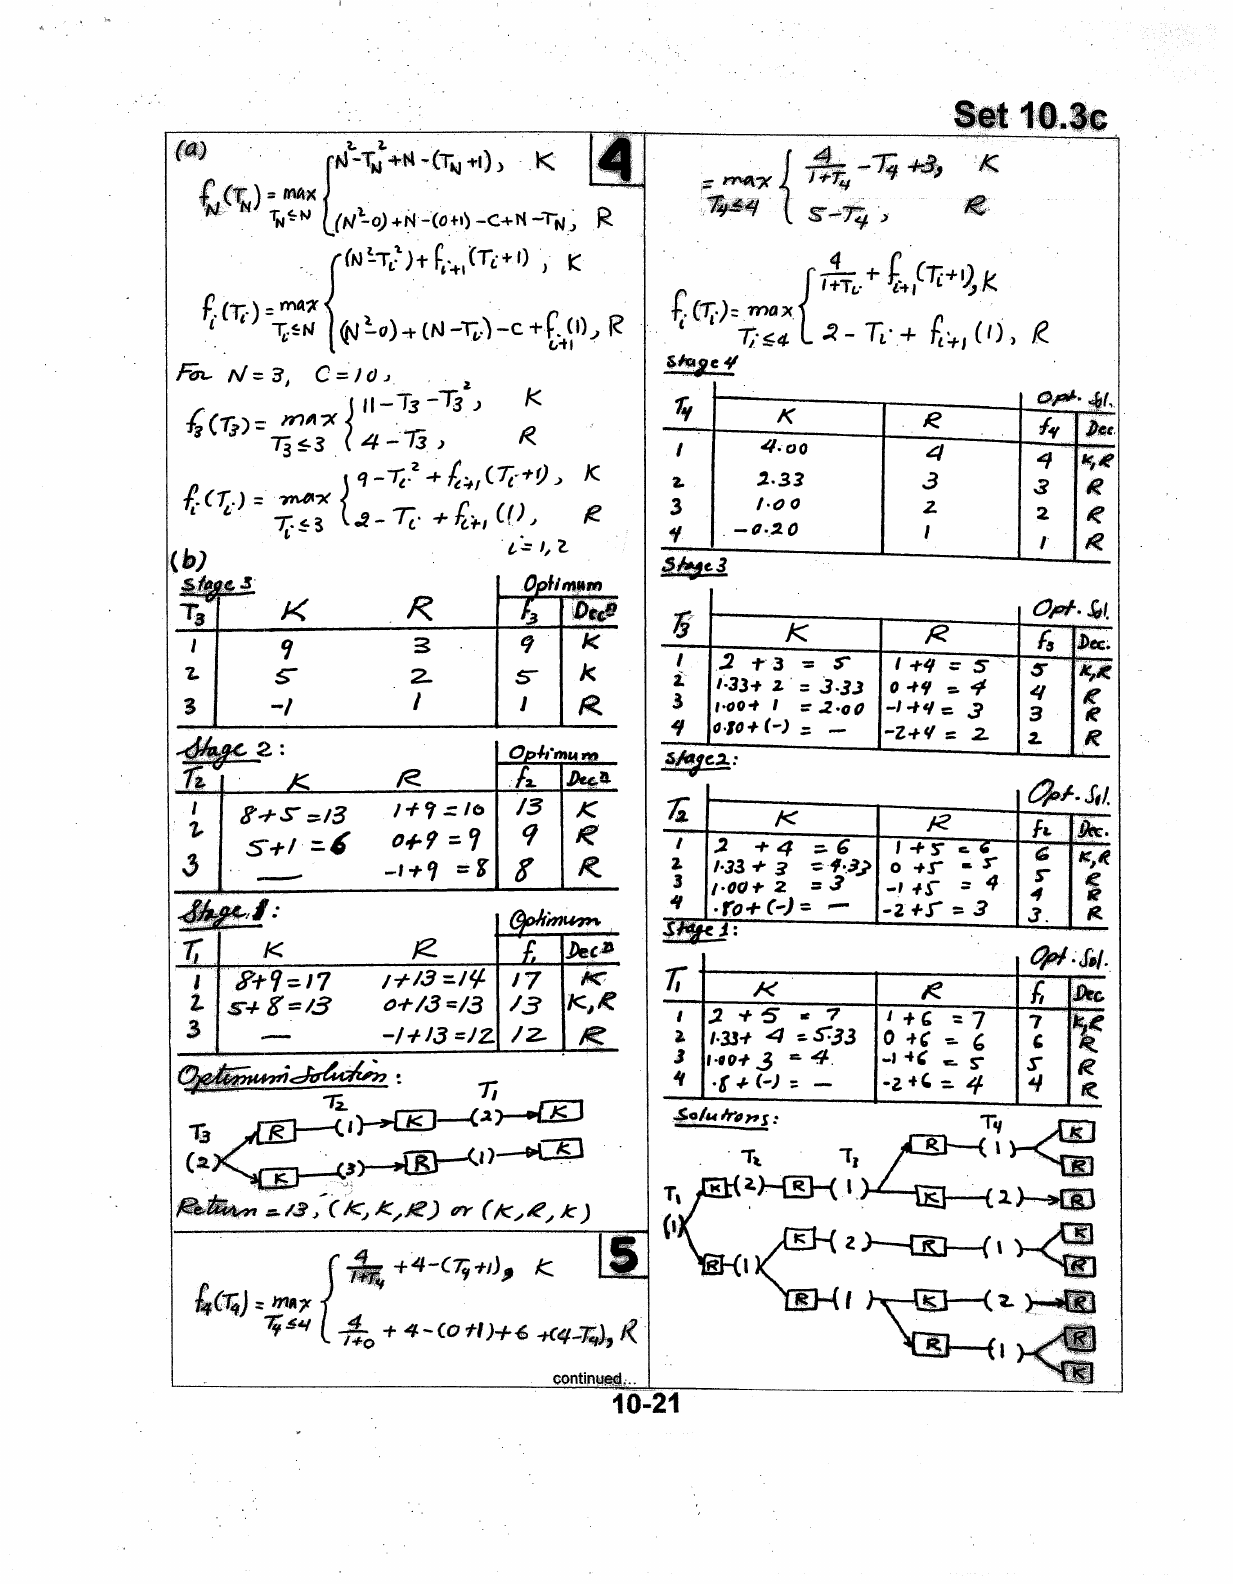 Set 10.3c
(a)
4
N²-T_N²+N-(T_N+1), K
f_N(T_N) = max
T_N≤N
(N²-0)+N-(0+1)-C+N-T_N, R
(N²-T_i²)+f_{i+1}(T_i+1), K
f_i(T_i) = max
T_i≤N
(N²-0)+(N-T_i)-C+f_{i+1}(1), R
For N=3, C=10,
11-T_3-T_3², K
f_3(T_3) = max
T_3≤3
4-T_3, R
9-T_i²+f_{i+1}(T_i+1), K
f_i(T_i) = max
T_i≤3
2-T_i+f_{i+1}(1), R
i=1,2
(b)
Stage 3 Optimum
T_3 K R f_3 Decⁿ
1 9 3 9 K
2 5 2 5 K
3 -1 1 1 R
Stage 2: Optimum
T_2 K R f_2 Decⁿ
1 8+5=13 1+9=10 13 K
2 5+1=6 0+9=9 9 R
3 — -1+9=8 8 R
Stage 1: Optimum
T_1 K R f_1 Decⁿ
1 8+9=17 1+13=14 17 K
2 5+8=13 0+13=13 13 K,R
3 — -1+13=12 12 R
Optimum Solution:
T_2 T_1
T_3 R (1) K (2) K
(2) K (3) R (1) K
Return = 13, (K,K,R) or (K,R,K)
5
4/(1+T_4) +4-(T_4+1), K
f_4(T_4) = max
T_4≤4
4/(1+0) + 4-(0+1)+6+(4-T_4), R
continued...
= max
T_4≤4
4/(1+T_4) -T_4+3, K
5-T_4, R
4/(1+T_i) + f_{i+1}(T_i+1), K
f_i(T_i) = max
T_i≤4
2-T_i+f_{i+1}(1), R
Stage 4
Opt. Sol.
T_4 K R f_4 Dec
1 4.00 4 4 K,R
2 2.33 3 3 R
3 1.00 2 2 R
4 -0.20 1 1 R
Stage 3
Opt. Sol.
T_3 K R f_3 Dec.
1 2+3=5 1+4=5 5 K,R
2 1.33+2=3.33 0+4=4 4 R
3 1.00+1=2.00 -1+4=3 3 R
4 0.80+(-)=— -2+4=2 2 R
Stage 2:
Opt. Sol.
T_2 K R f_2 Dec.
1 2+4=6 1+5=6 6 K,R
2 1.33+3=4.33 0+5=5 5 R
3 1.00+2=3 -1+5=4 4 R
4 .80+(-)=— -2+5=3 3. R
Stage 1:
Opt. Sol.
T_1 K R f_1 Dec
1 2+5=7 1+6=7 7 K,R
2 1.33+4=5.33 0+6=6 6 R
3 1.00+3=4. -1+6=5 5 R
4 .8+(-)=— -2+6=4 4 R
Solutions:
T_4
R (1) K
T_2 T_3
R
T_1 K (2) R (1) K (2) R
(1) K (2) R (1) K
R (1) R
R (1) K (2) R
R (1) R
K
10-21